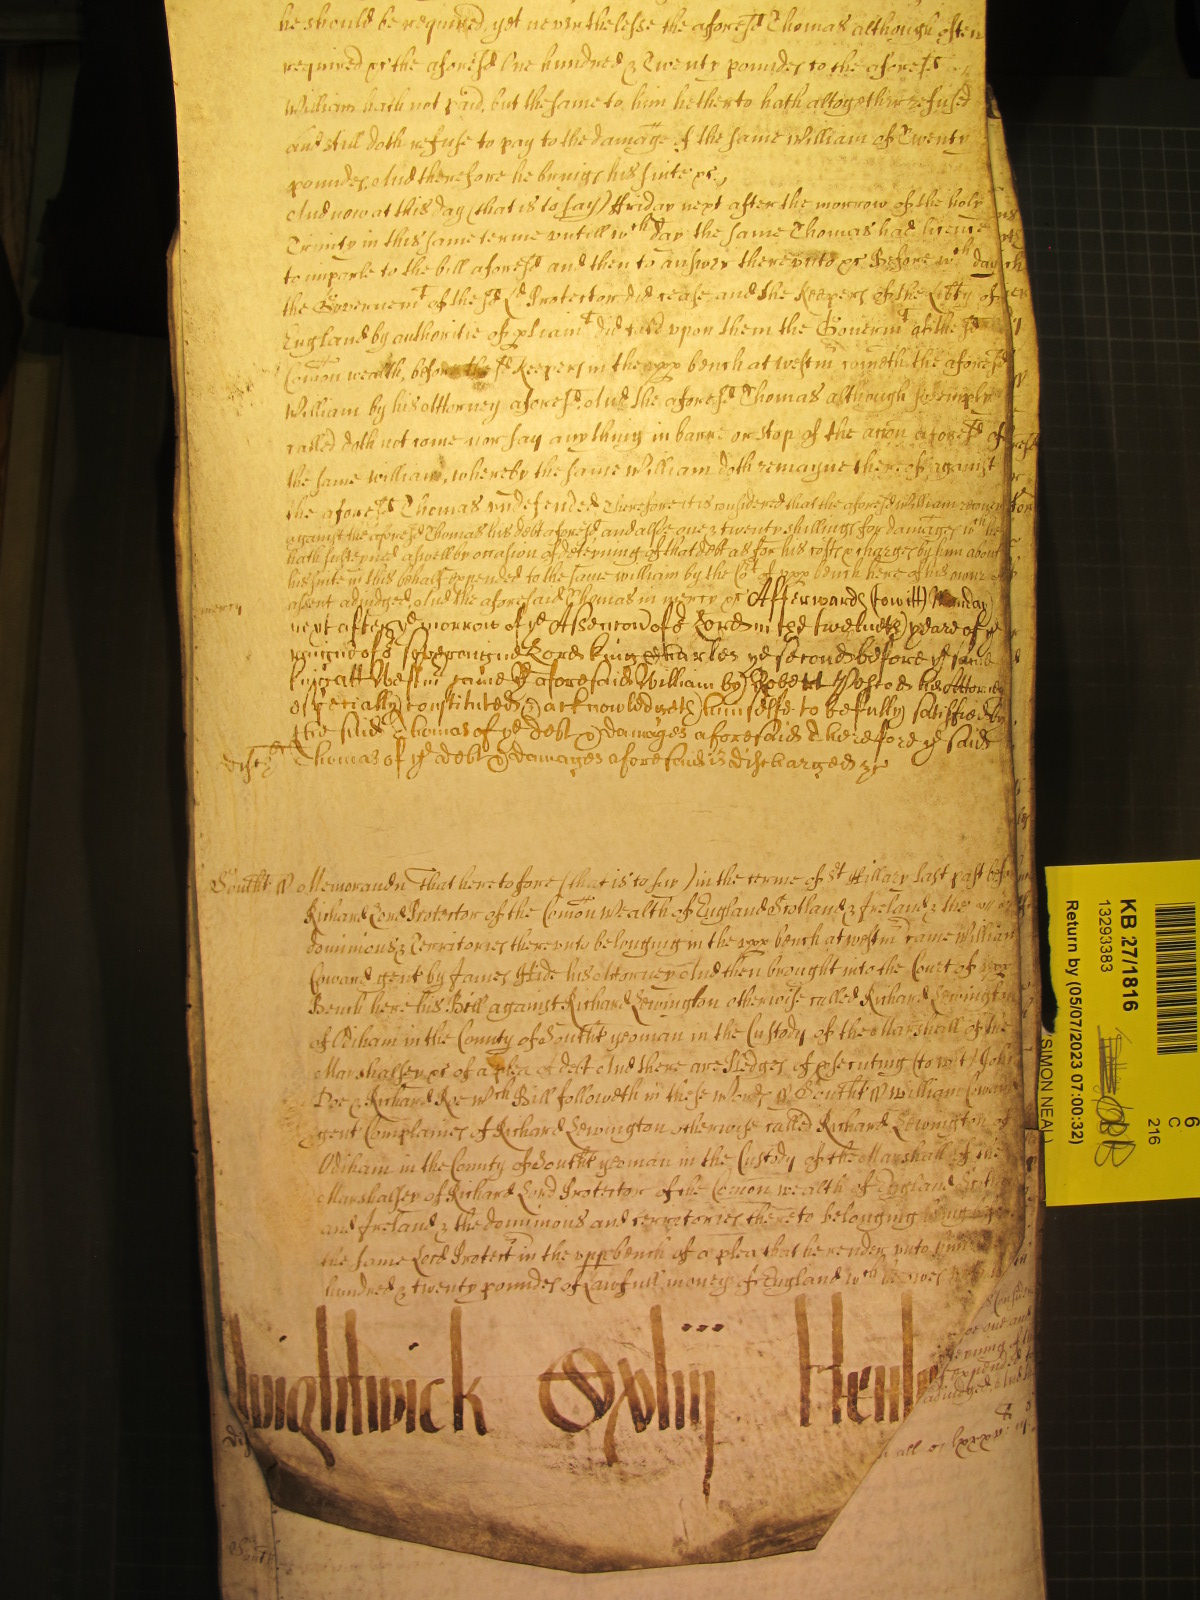 he should be required, yet neverthelesse the aforesd Thomas although often
required &c the aforesd One hundred & Twenty poundes to the aforesd
William hath not paid, but the same to him hetherto hath altogether refused
and still doth refuse to pay to the damage of the same William of Twenty
poundes, And therefore he brings his suite &c,
And now at this day (that is to say) ffriday next after the morrow of the holy
Trinity in this same terme untill wch day the same Thomas had licence
to imparle to the bill aforesd and then to answer thereunto &c Before wch day
the Governemt of the sd Ld Protector did cease, and the Keepers of the Libty of
England by authoritie of pliamt did take upon them the Governmt of the sd
Comon wealth, before the sd Keepers in the upp bench at westm cometh the aforesd
William by his Attorney aforesd, And the aforesd Thomas although solemply
called doth not come nor say any thing in barre or stop of the acon aforesd of
the same william, whereby the same William doth remayne thereof against
the aforesd Thomas undefended Therefore it is considered that the aforesd William recover
against the aforesd Thomas his debt aforesd, and alsoe one & twenty shillings for damages wch he
hath susteyned aswell by occasion of deteyning of that debt as for his costs & charges by him about
his suite in this behalf expended to the same william by the Cot of upp bench here of his owne
assent adiudged, And the aforesaid Thomas in mercy &c Afterwards (to witt) Monday
mercy
next after ye morrow of ye Ascencon of or Lord in the twelueth yeare of ye
raigne of or Soveraigne Lord King Charles ye second before ye same
King att Westm came ye aforesaid William by Robert his Attorney
especially constituted & acknowledgeth himselfe to be fully satisfied by
the said Thomas of ye debt & damages aforesaid Therefore ye said
Thomas of ye debt & damages aforesaid is discharged &c
Southt ss Memorandn That heretofore (that is to say) in the terme of St Hillary last past before
Richard Lord Protector of the Comon Wealth of England Scotland & Ireland & the
dominions & Territories thereunto belonging in the upp bench at westm came William
Coward gent by James Hide his Attorney And then brought into the Court of upp
Bench here his Bill against Richard Lewington otherwise called Richard Lewington
of Odiham in the County of Southt yeoman in the Custody of the Marshall of the
Marshalsey &c of a plea of debt And there are Pledges of psecuting (to wit) John
Doe & Richard Roe wch Bill followeth in these words ss Southt ss William Coward
gent Complaines of Richard Lewington otherwise called Richard Lewington of
Odiham in the County of Southt yeoman in the Custody of the Marshall of the
Marshalsey of Richard Lord Protector of the Comon wealth of England Scotland
and Ireland & the dominions and territories thereto belonging being before
the same Lord Protectr in the upp bench of a plea that he render unto him
hundred & twenty poundes of Lawfull money of England wch he owes
Wightwick Oxlviij Henly
KB 27/1816
13293383
Return by (05/07/2023 07:00:32)
SIMON NEAL
6
C
216